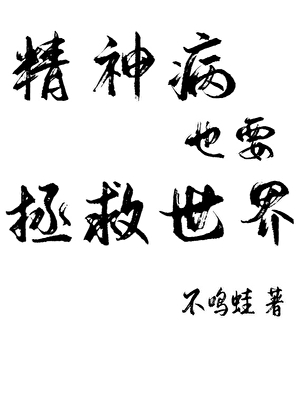 精神病
也要
拯救世界
不鸣蛙 著